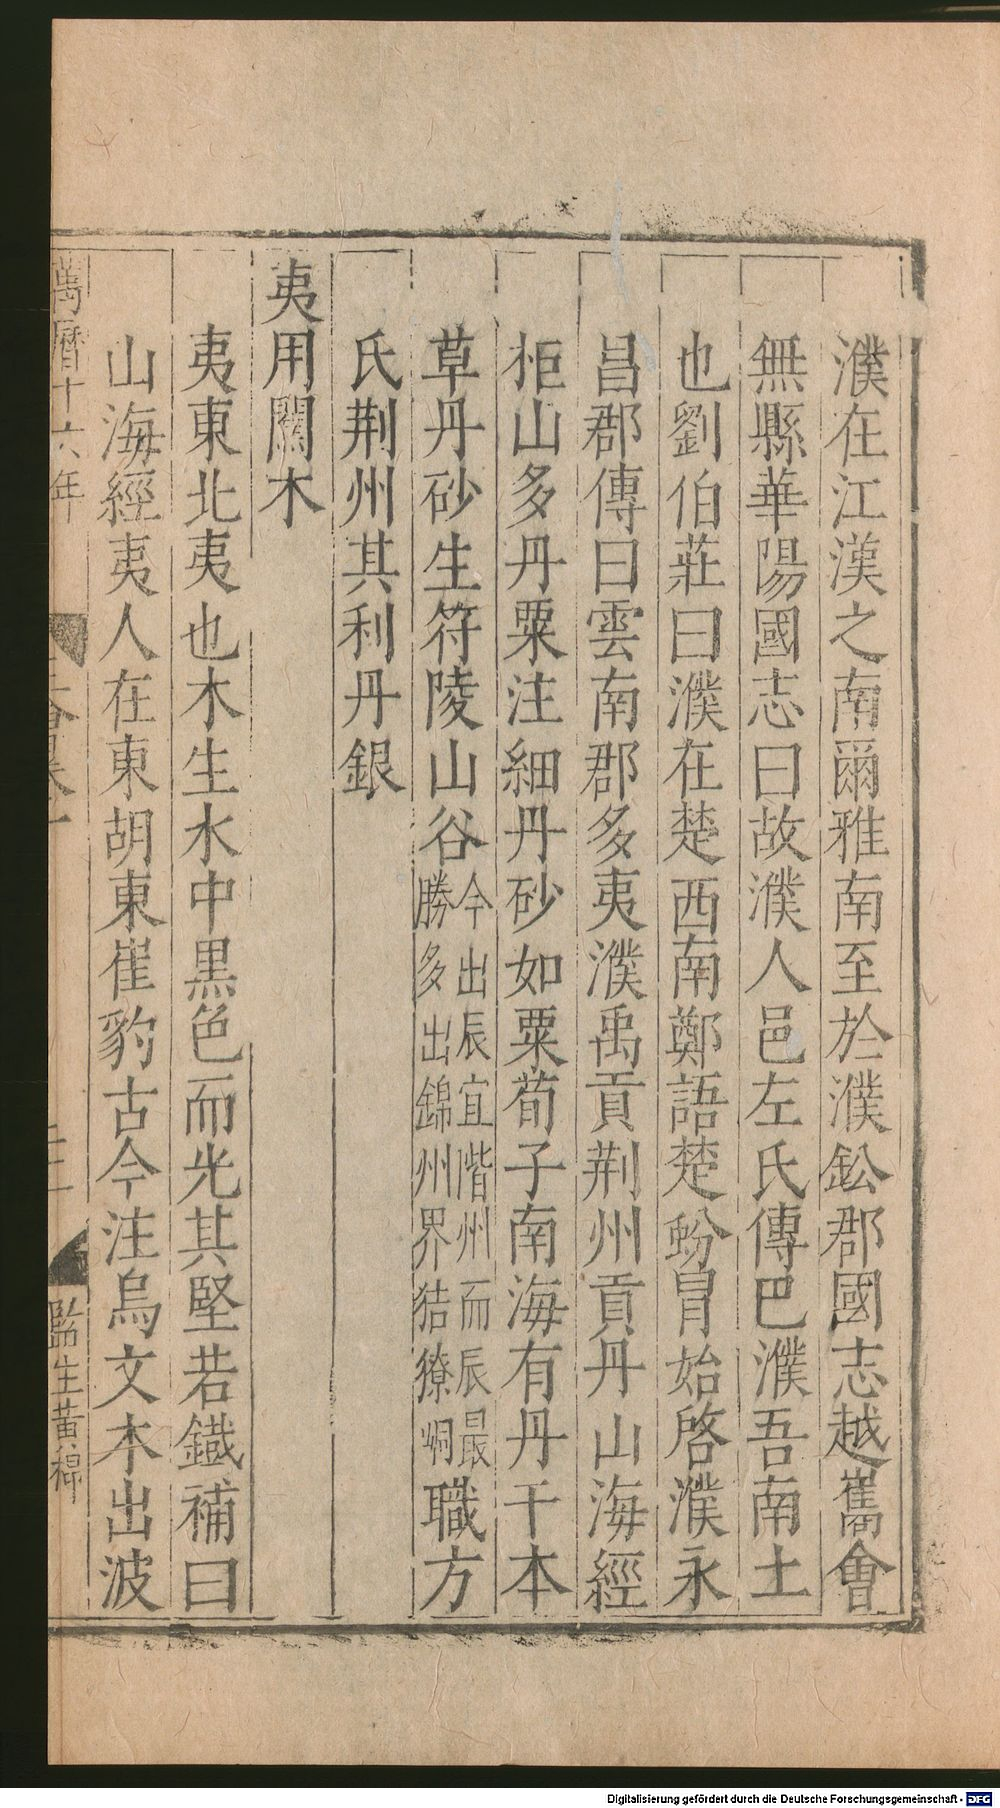 濮在江漢之南爾雅南至於濮鈆郡國志越巂會
無縣華陽國志曰故濮人邑左氏傳巴濮吾南土
也劉伯莊曰濮在楚西南鄭語楚蚡冒始啓濮永
昌郡傳曰雲南郡多夷濮禹貢荆州貢丹山海經
柜山多丹粟注細丹砂如粟荀子南海有丹干本
草丹砂生符陵山谷今出辰宜階州而辰最勝多出錦州界狤獠峒職方
氏荆州其利丹銀
夷用闟木
夷東北夷也木生水中黒色而光其堅若鐵補曰
山海經夷人在東胡東崔豹古今注烏文木出波
萬曆十六年
監生黃
Digitalisierung gefördert durch die Deutsche Forschungsgemeinschaft - DFG